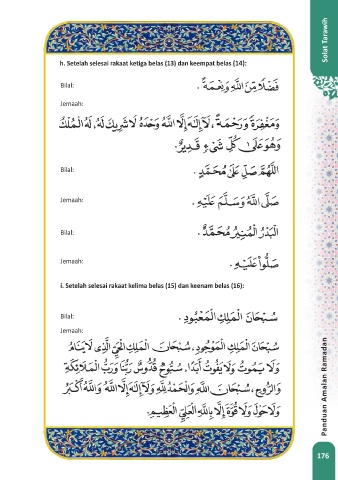 Solat Tarawih
h. Setelah selesai rakaat ketiga belas (13) dan keempat belas (14):
Bilal:
فَضْلًا مِّنَ اللَّهِ وَنِعْمَةً .
Jemaah:
وَمَغْفِرَةً وَرَحْمَةً ، لَآ إِلَـٰهَ إِلَّا اللَّهُ وَحْدَهُ لَا شَرِيكَ لَهُ، لَهُ الْمُلْكُ
وَهُوَ عَلَىٰ كُلِّ شَيْءٍ قَدِيرٌ.
Bilal:
اللَّهُمَّ صَلِّ عَلَىٰ مُحَمَّدٍ .
Jemaah:
صَلَّى اللَّهُ وَسَلَّمَ عَلَيْهِ .
Bilal:
الْبَدْرُ الْمُنِيرُ مُحَمَّدٌ .
Jemaah:
صَلُّوا عَلَيْهِ .
i. Setelah selesai rakaat kelima belas (15) dan keenam belas (16):
Bilal:
سُبْحَانَ الْمَلِكِ الْمَعْبُودِ .
Jemaah:
سُبْحَانَ الْمَلِكِ الْمَوْجُودِ، سُبْحَانَ الْمَلِكِ الْحَيِّ الَّذِي لَا يَنَامُ
وَلَا يَمُوتُ وَلَا يَفُوتُ أَبَدًا، سُبُّوحٌ قُدُّوسٌ رَبُّنَا وَرَبُّ الْمَلَائِكَةِ
وَالرُّوحِ، سُبْحَانَ اللَّهِ وَالْحَمْدُ لِلَّهِ وَلَا إِلَـٰهَ إِلَّا اللَّهُ وَاللَّهُ أَكْبَرُ
وَلَا حَوْلَ وَلَا قُوَّةَ إِلَّا بِاللَّهِ الْعَلِيِّ الْعَظِيمِ.
Panduan Amalan Ramadan
176